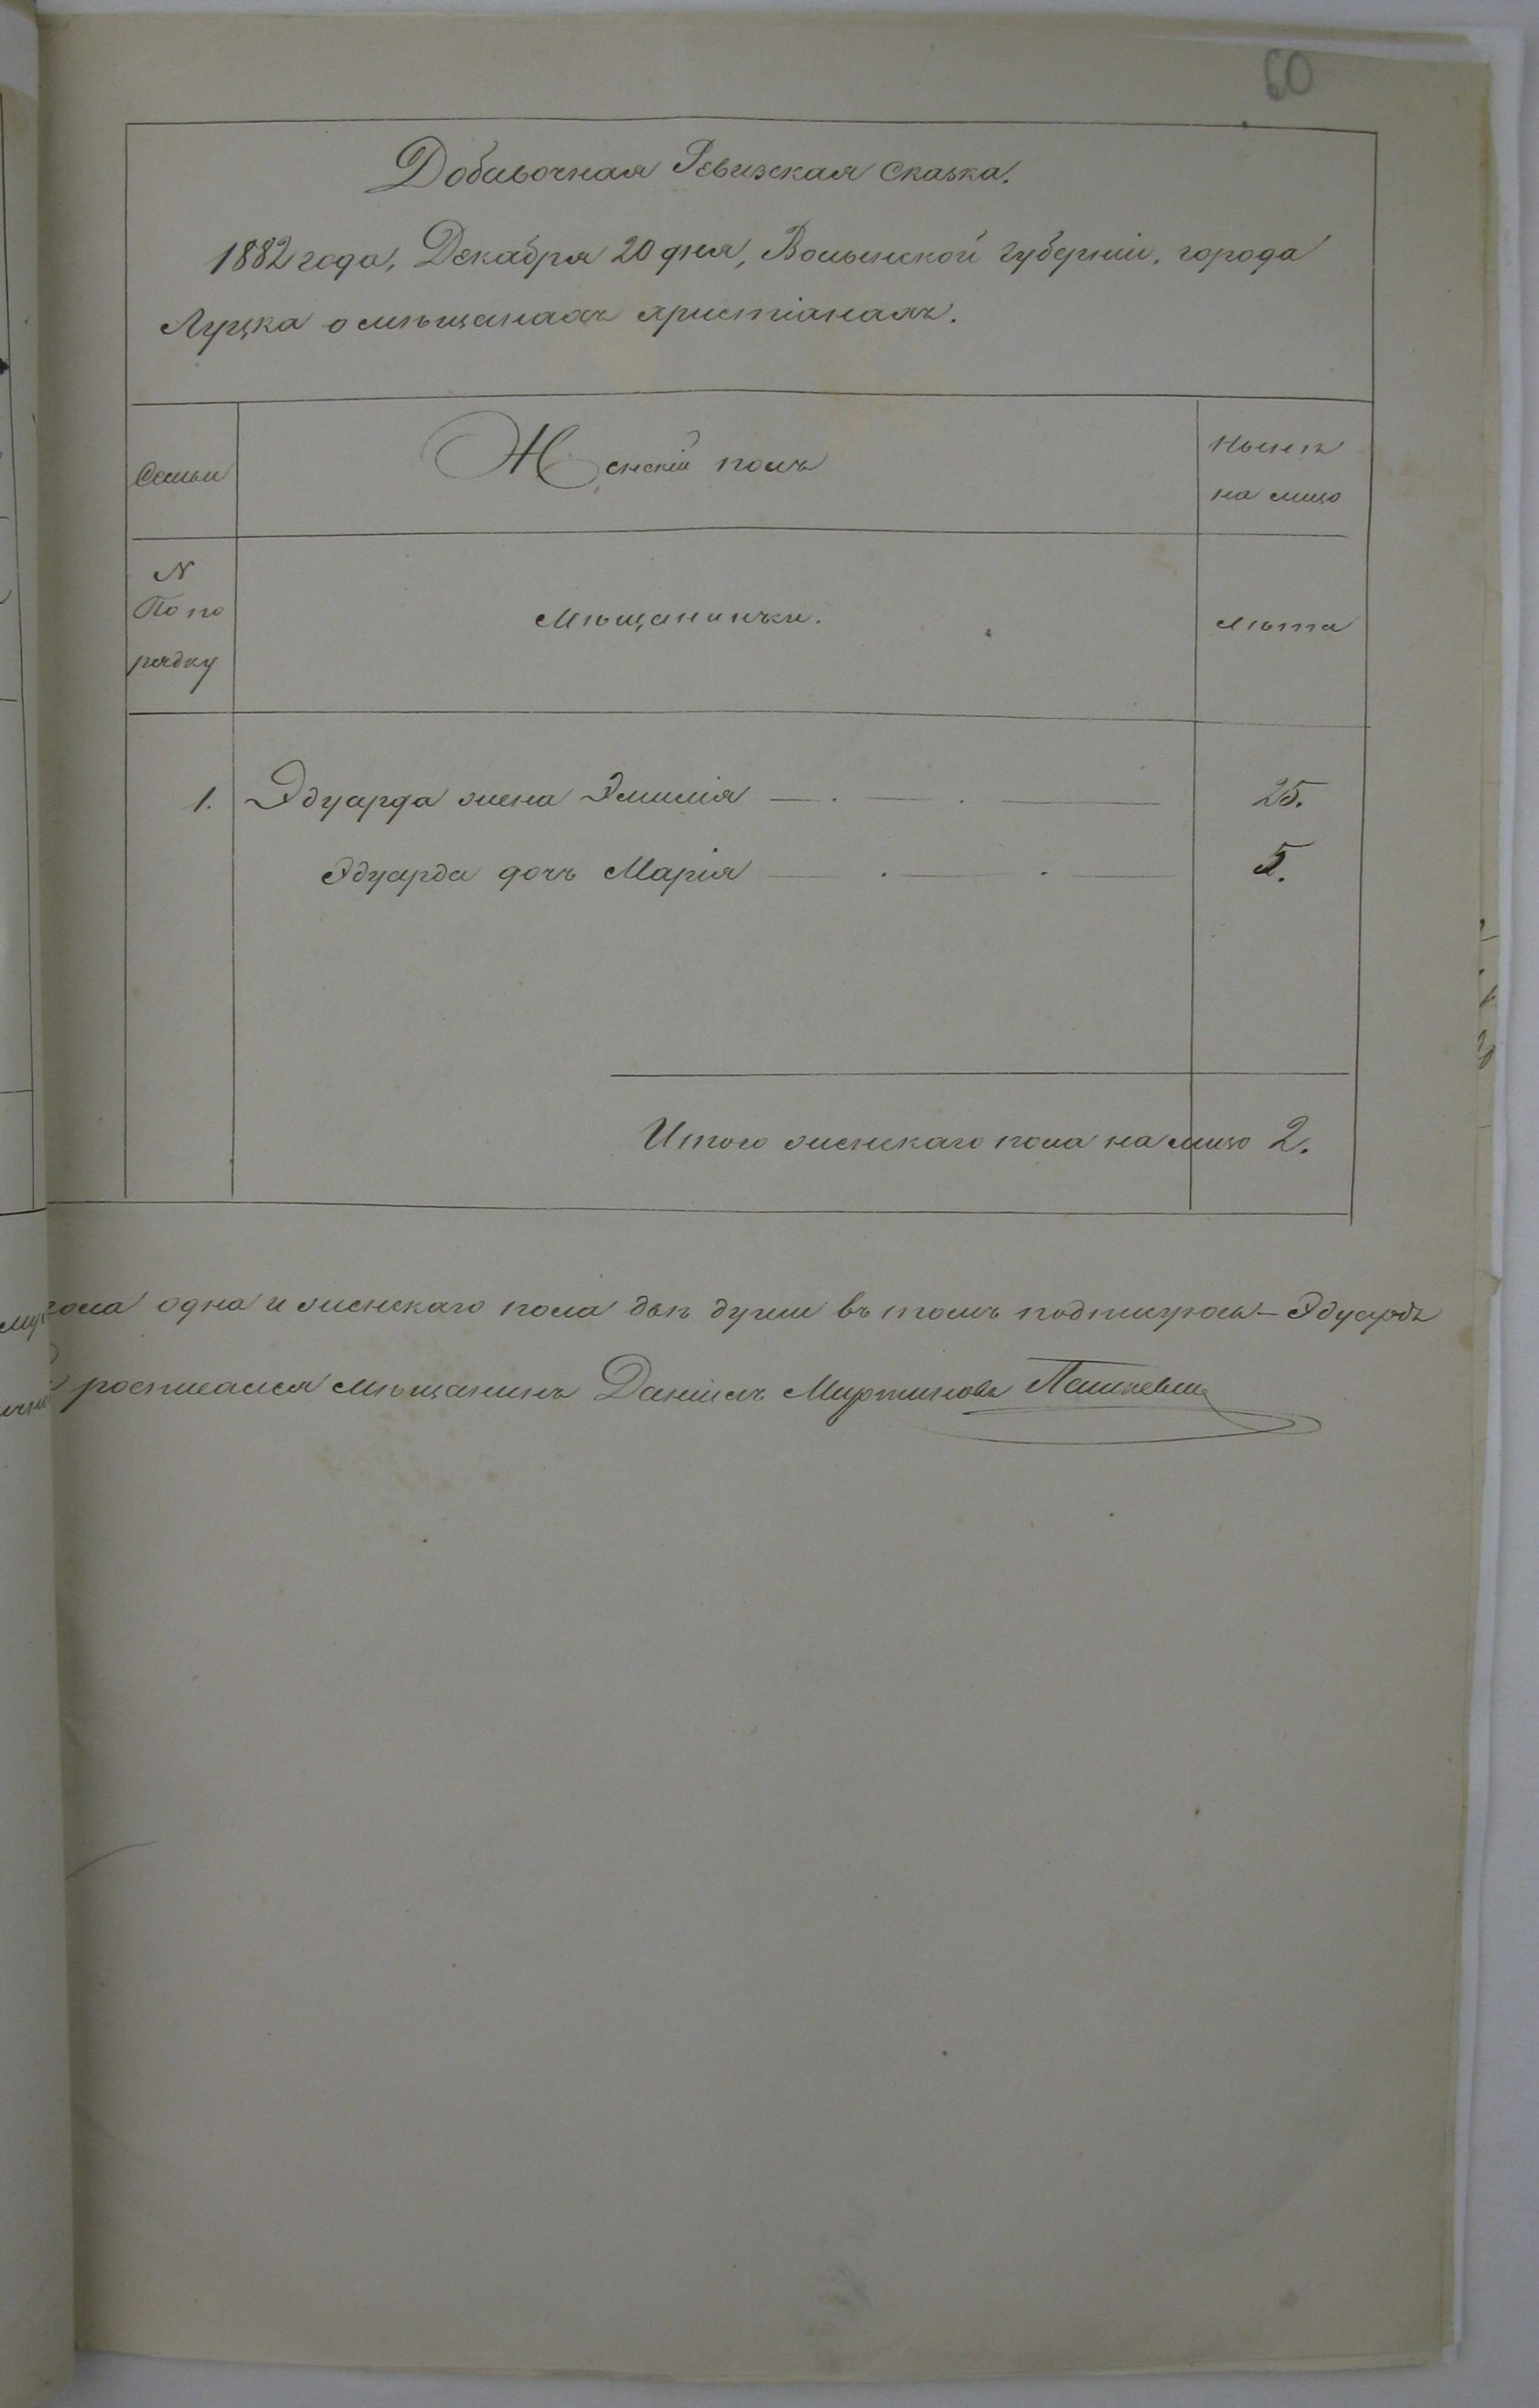 60
Добавочная Ревизская Сказка.
1882 года, Декабря 20 дня, Волынской губерніи, города
Луцка о мѣщанахъ христіанахъ.
Семьи
Женскій полъ
Нынѣ
на лицо
N
По по
рядку
Мѣщанички.
лѣта
1. Эдуарда жена Эмилія — . — . — 25.
Эдуарда дочь Марія — . — . — 5.
Итого женскаго пола на лицо 2.
пола одна и женскаго пола двѣ души въ томъ подпишуюсь – Эдуардъ
росписался мѣщанинъ Даніилъ Мартиновъ Пашкевичъ